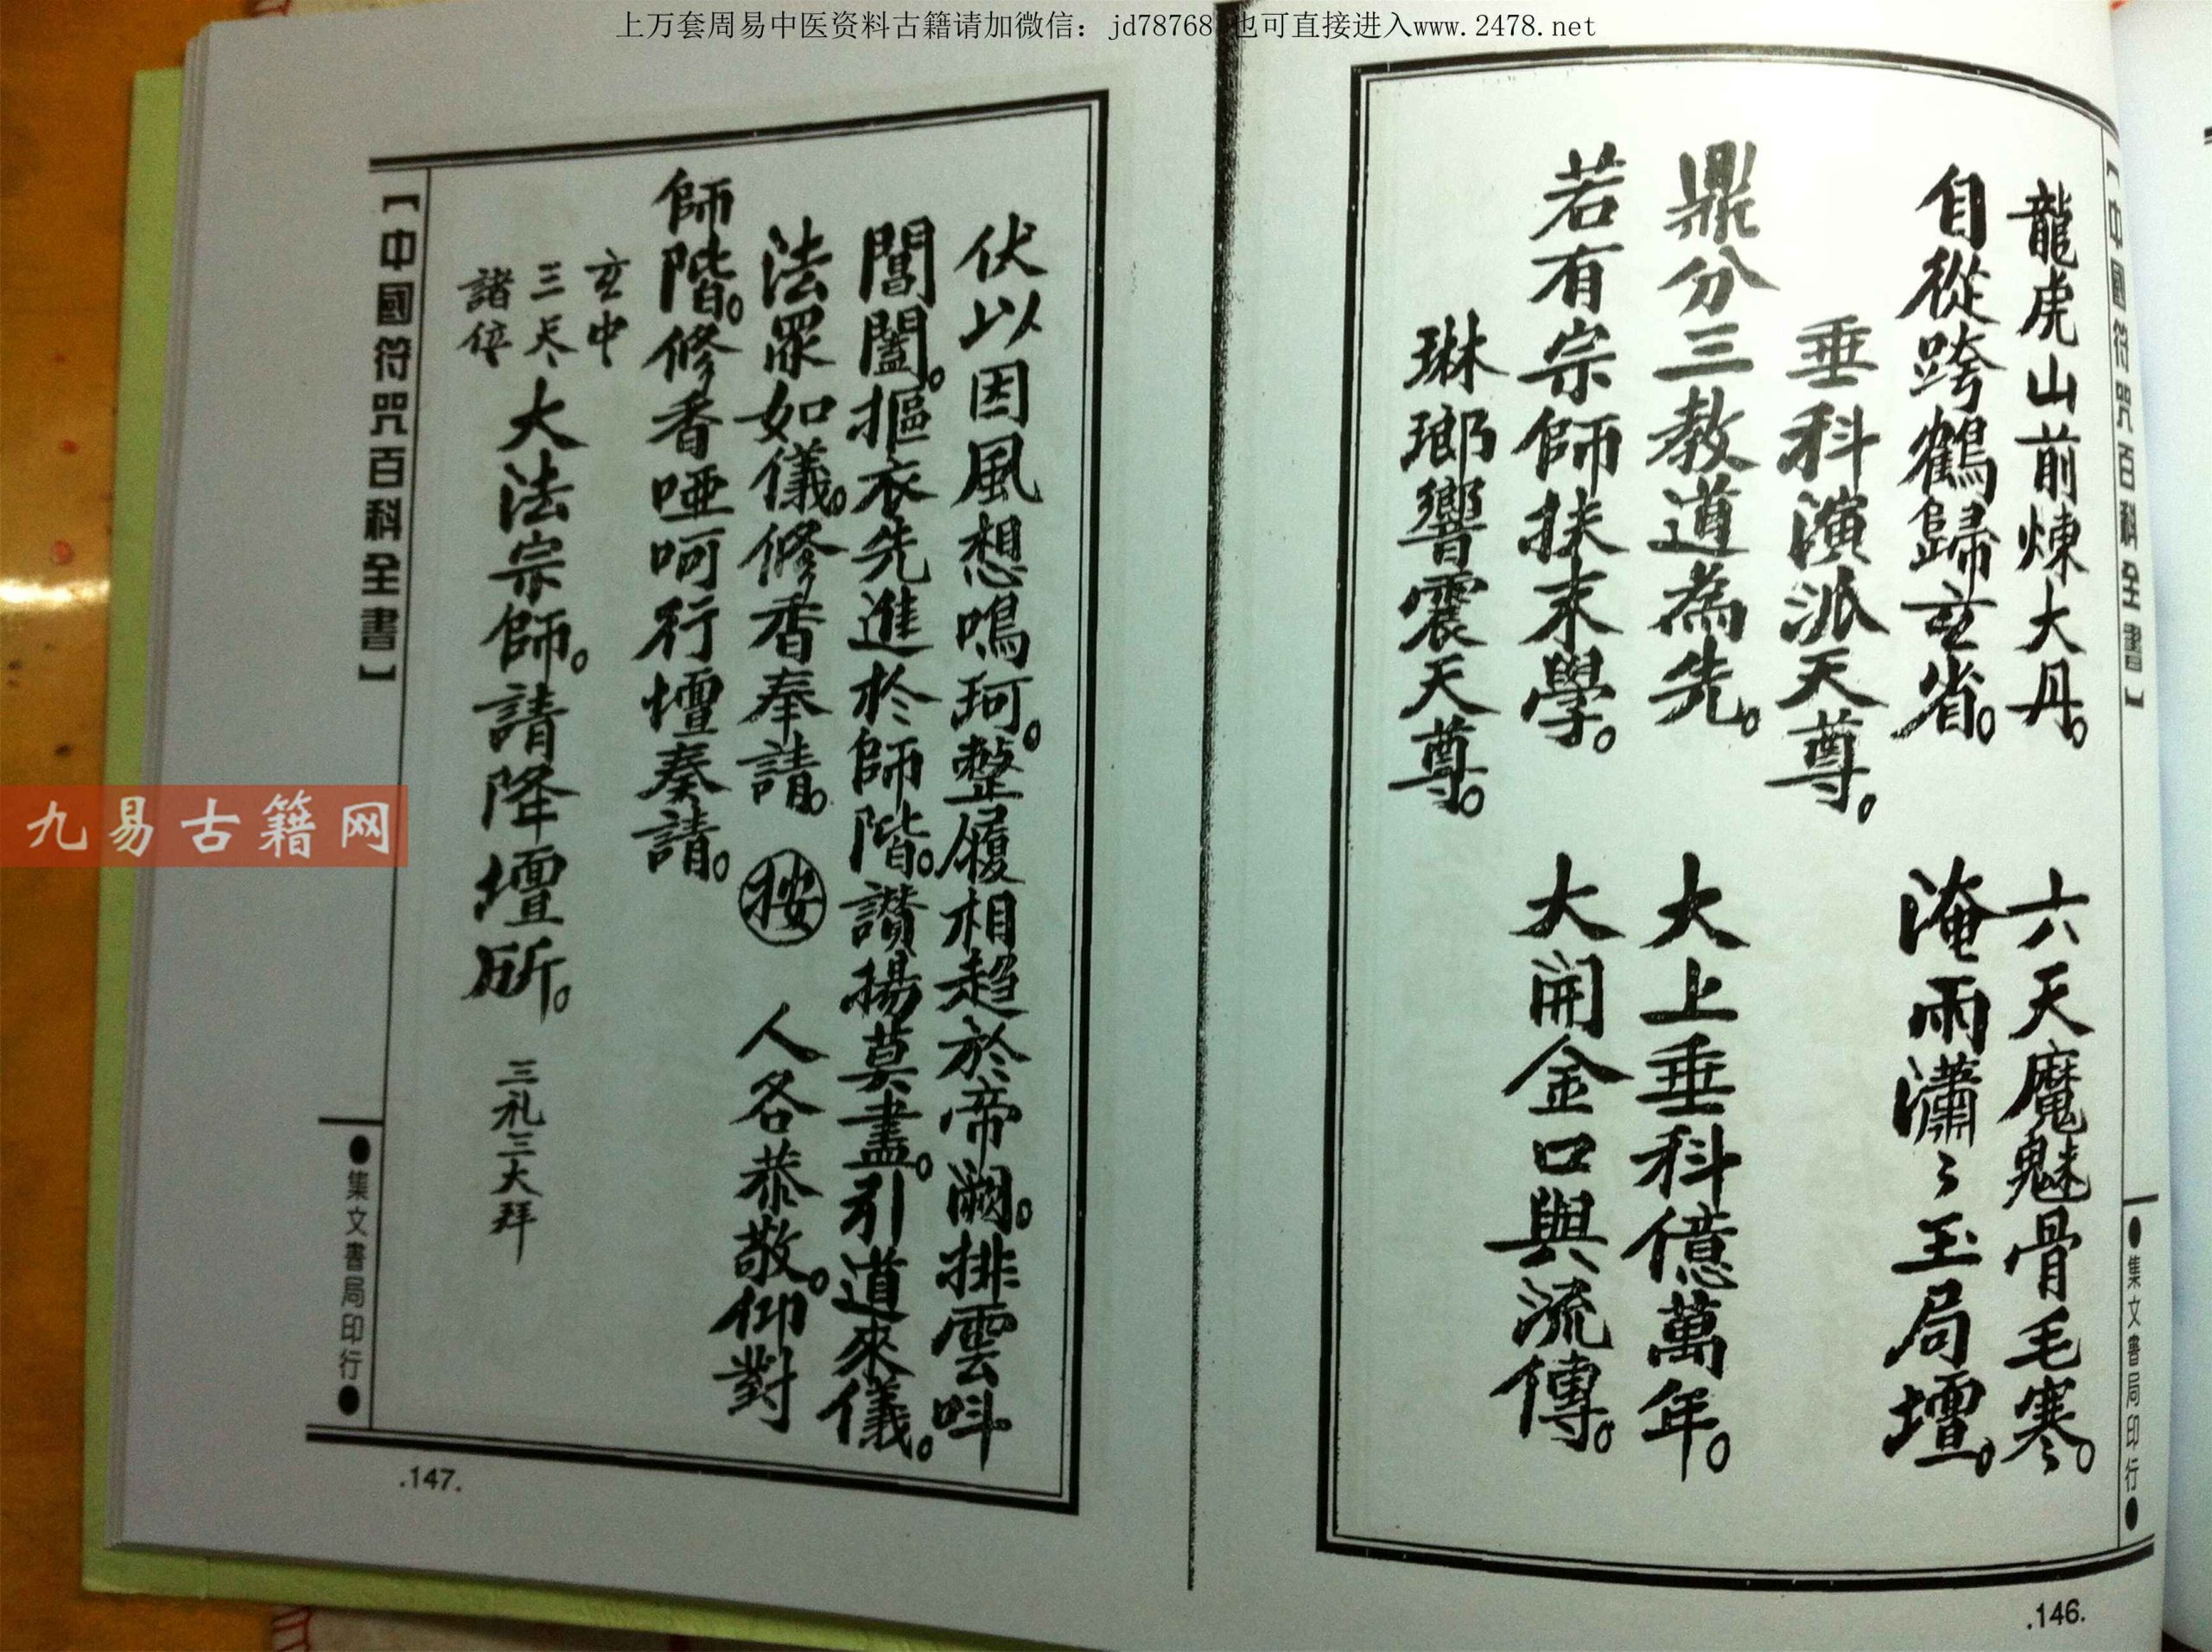 上万套周易中医资料古籍请加微信：jd78768 也可直接进入www.2478.net
【中國符咒百科全書】
龍虎山前煉大丹。 六天魔魅骨毛寒。
自從跨鶴歸玄省。 淹雨瀟々玉局壇。
垂科演派天尊。
鼎分三教道為先。 大上垂科億萬年。
若有宗師扶末學。 大開金口與流傳。
琳瑯響震天尊。
●集文書局印行●
.146.
伏以因風想鳴珂。整履相趨於帝闕。排雲呌
閶闔。摳衣先進於師階。讚揚莫盡。引道來儀。
法眾如儀。修香奉請。 按 人各恭敬。仰對
師階。修香啞呵行壇奏請。
玄中
三天
諸位
大法宗師。請降壇所。 三礼三大拜
【中國符咒百科全書】
●集文書局印行●
.147.
九易古籍网